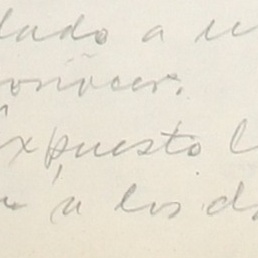 lado a u
onocer.
expuesto l
a los d